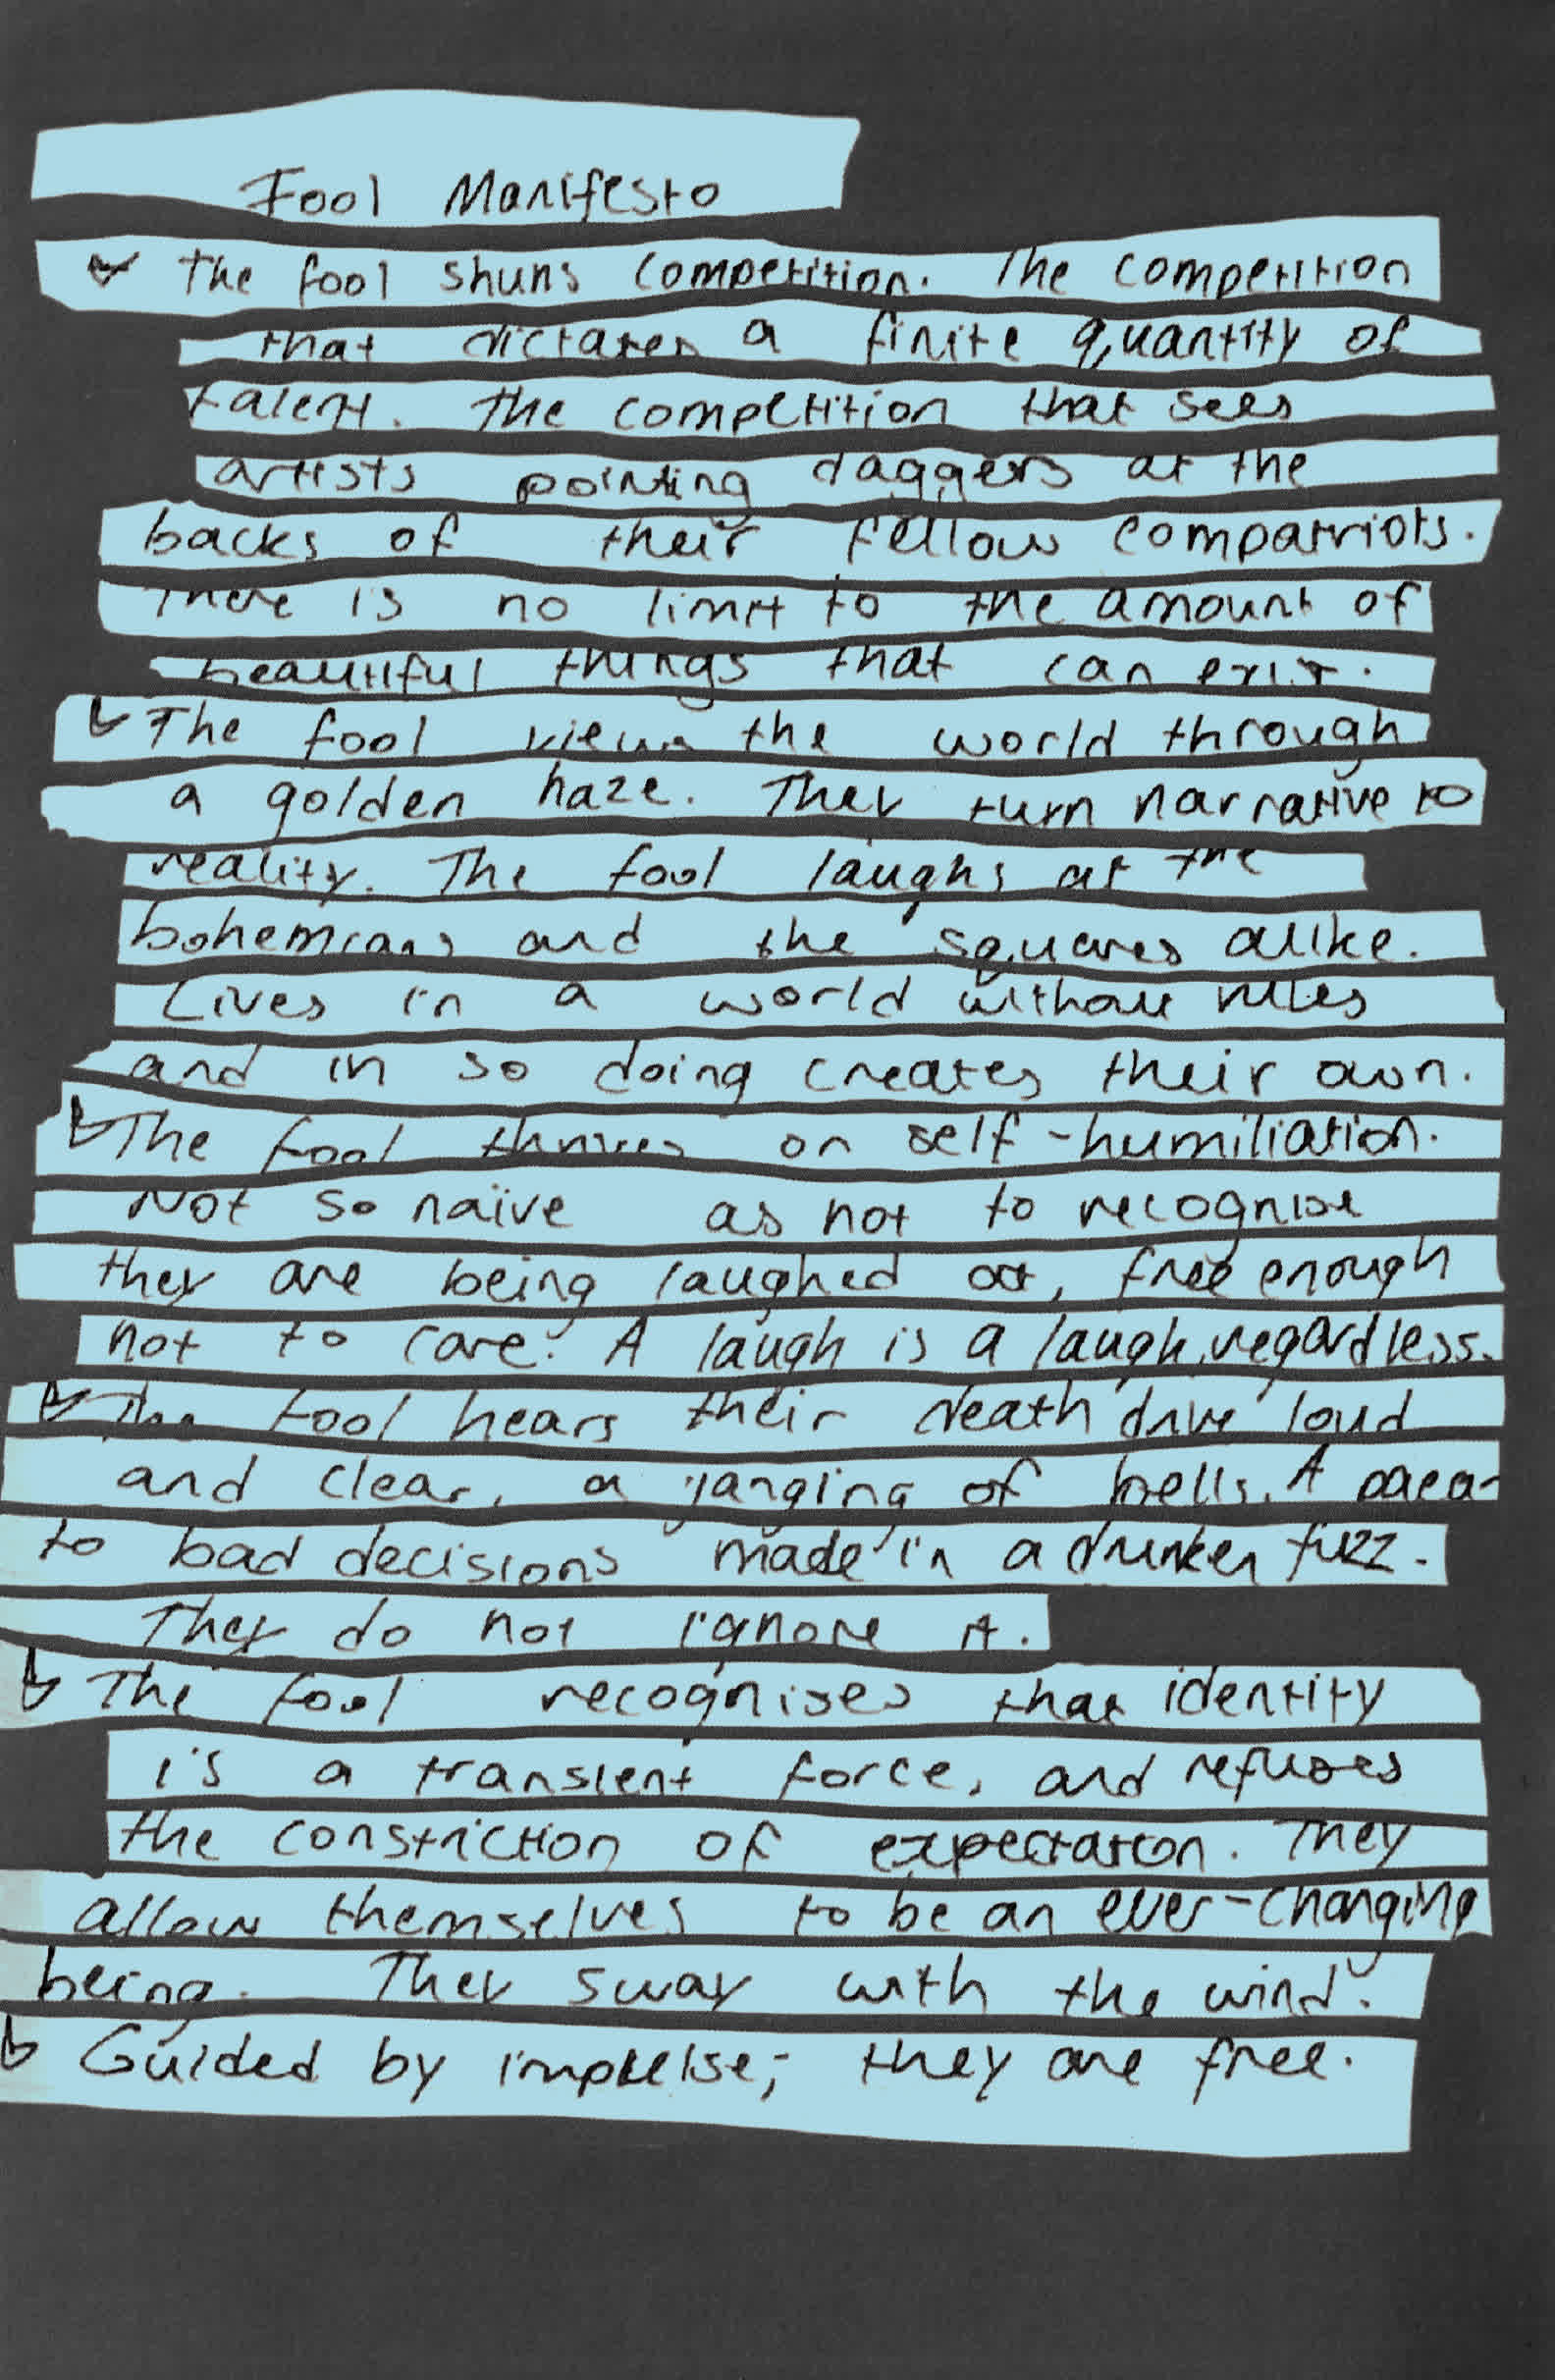 Fool Manifesto
↳ The fool shuns competition. The competition
that dictates a finite quantity of
talent. The competition that sees
artists pointing daggers at the
backs of their fellow compatriots.
There is no limit to the amount of
beautiful things that can exist.
↳ The fool views the world through
a golden haze. They turn narrative to
reality. The fool laughs at the
bohemians and the squares alike.
Lives in a world without rules
and in so doing creates their own.
↳ The fool thrives on self-humiliation.
Not so naïve as not to recognise
they are being laughed at, free enough
not to care. A laugh is a laugh, regardless.
↳ The fool hears their death drive loud
and clear, a janging of bells. A paean
to bad decisions made in a drunken fuzz.
They do not ignore it.
↳ The fool recognises that identity
is a transient force, and refuses
the constriction of expectation. They
allow themselves to be an ever-changing
being. They sway with the wind.
↳ Guided by impulse; they are free.